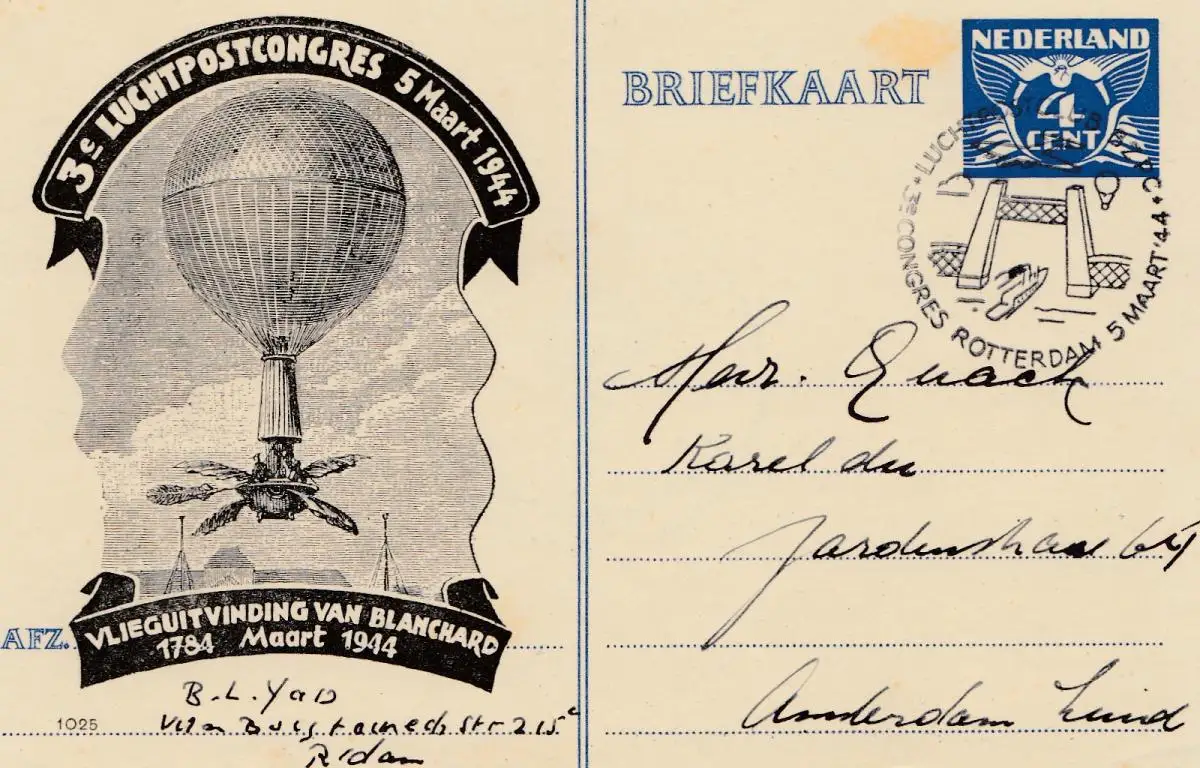 3e LUCHTPOSTCONGRES 5 Maart 1944
VLIEGUITVINDING VAN BLANCHARD
1784 Maart 1944
AFZ.
B.L. Yap
215c
R'dam
1025
BRIEFKAART
NEDERLAND
4
CENT
3e CONGRES ROTTERDAM 5 MAART '44
Quack
Karel du
64
Amsterdam Zuid